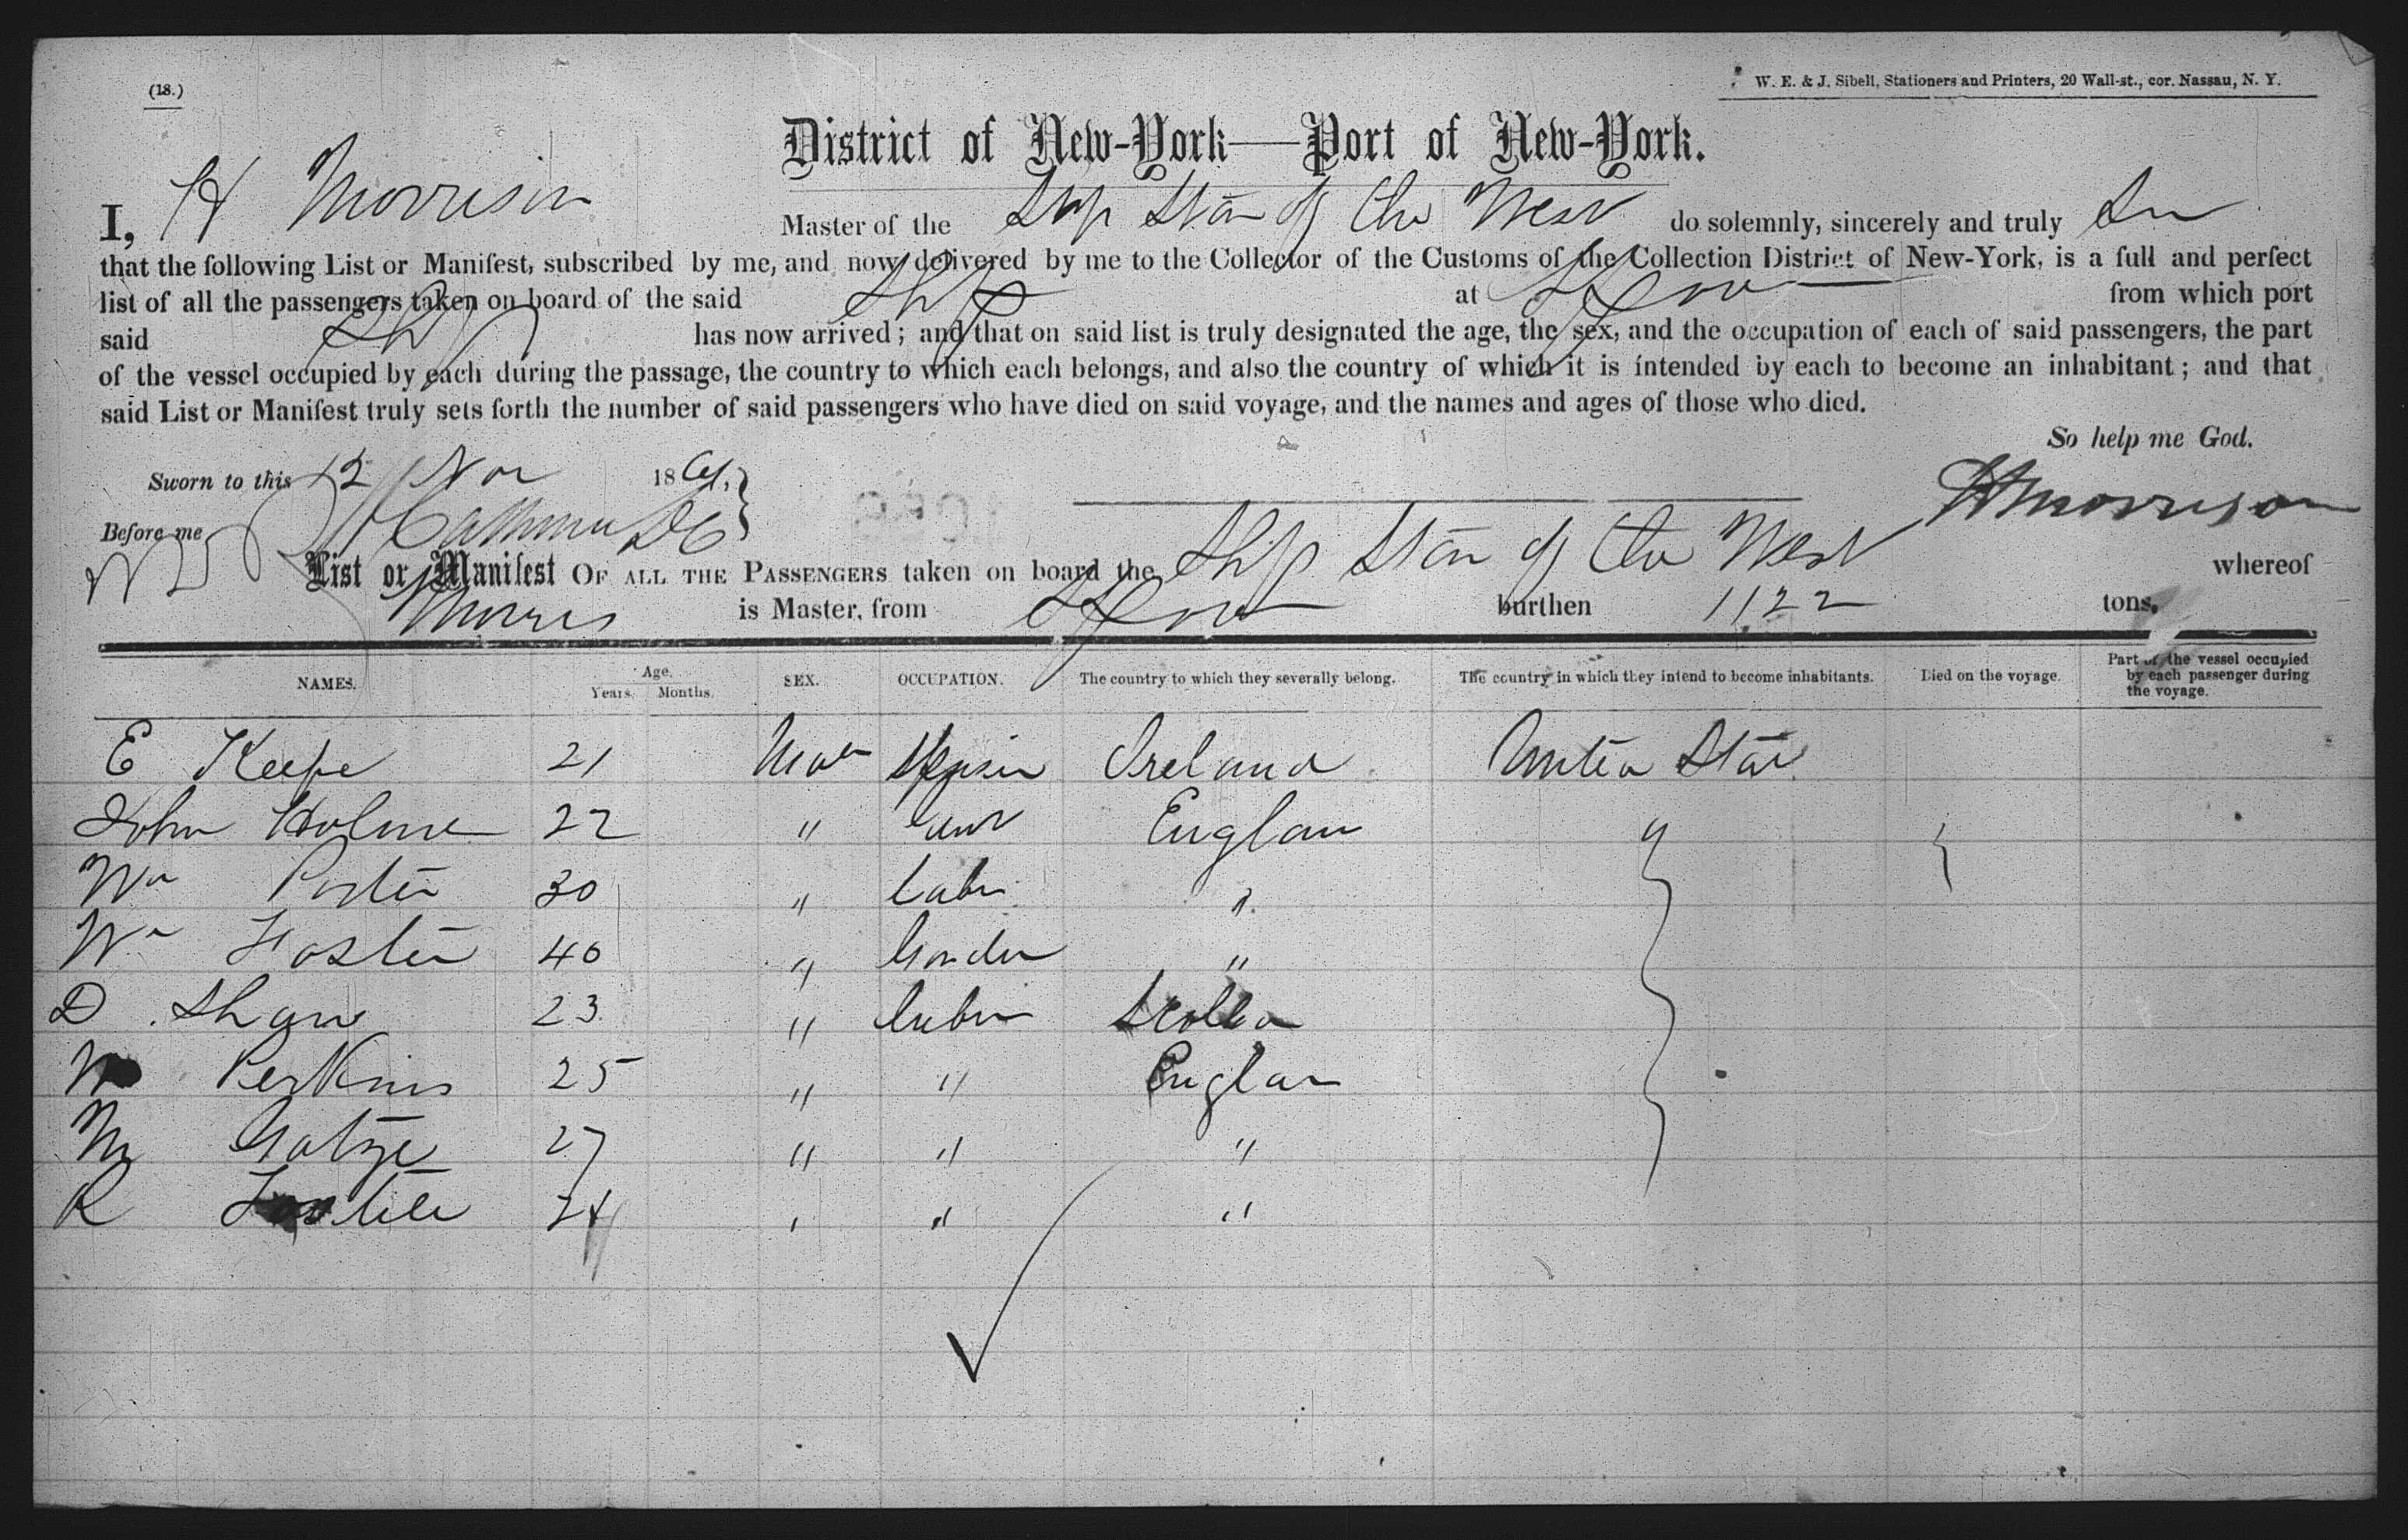 (18.)
W. E. & J. Sibell, Stationers and Printers, 20 Wall-st., cor. Nassau, N. Y.
District of New-York—Port of New-York.
I, H Morrison Master of the Ship Star of the West do solemnly, sincerely and truly
that the following List or Manifest, subscribed by me, and now delivered by me to the Collector of the Customs of the Collection District of New-York, is a full and perfect
list of all the passengers taken on board of the said Ship at from which port
said Ship has now arrived; and that on said list is truly designated the age, the sex, and the occupation of each of said passengers, the part
of the vessel occupied by each during the passage, the country to which each belongs, and also the country of which it is intended by each to become an inhabitant; and that
said List or Manifest truly sets forth the number of said passengers who have died on said voyage, and the names and ages of those who died.
So help me God.
Sworn to this 12 Nov 1861,
H Morrison
Before me
List or Manifest OF ALL THE PASSENGERS taken on board the Ship Star of the West whereof
Morris is Master, from burthen 1122 tons.
NAMES. Age. Years. Months. SEX. OCCUPATION. The country to which they severally belong. The country in which they intend to become inhabitants. Died on the voyage. Part of the vessel occupied by each passenger during the voyage.
E Keefe 21 Male Ireland United Stat
John Holme 22 " Englan "
Wm Porter 30 " Labr "
Wm Foster 40 " "
D Shaw 23 " Labr Scotlan
Perkins 25 " " Englan
27 " " "
R 24 " " "